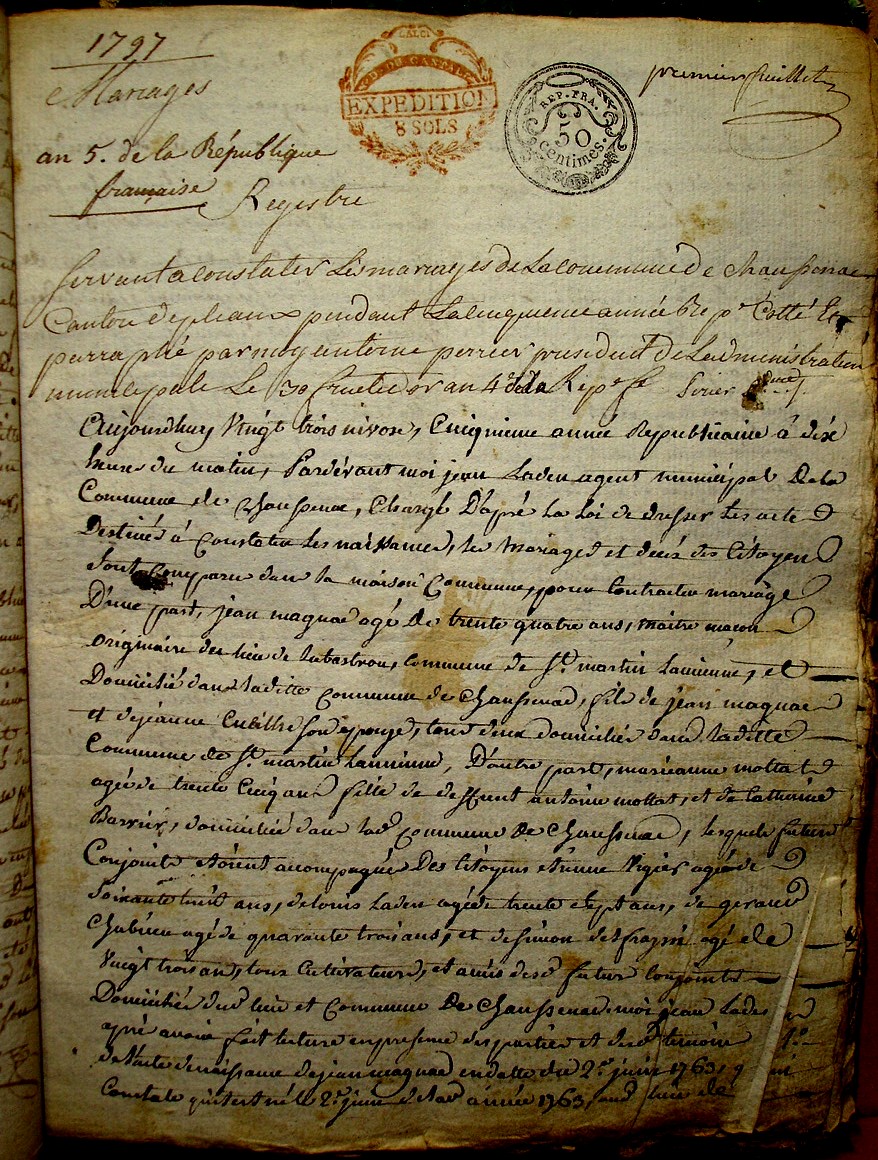 1797
Mariages
an 5. de la République
française
CALCI
D. DU CANTAL
EXPEDITION
8 SOLS
REP. FRA.
50
centimes.
premier feuillet
Registre
Servant a constater Les mariages de La commune de Chaussenac
Canton de pleaux pendant La cinquieme année Rep.e Cotté Et
parraphé par moy antoine perrier president de Ladministration
municipale Le 30 fructidor an 4e de la Rep.e f.e
Aujourdhuy Vingt trois nivose, Cinquieme année Republicaine à dix
heures du matin, Pardevant moi jean Laden agent municipal De la
Commune de Chaussenac, Chargé D'apré La Loi de dresser Les acte
Destinés à Constater Les naissances, les Mariages et decés des Citoyens
Sont Comparu dans la maison Commune, pour Contracter mariage
D'une part, jean magnac agé De trente quatre ans, maitre maçon
originaire du lieu de commune de St martin Lanienne, et
Domicilié dans laditte Commune de Chaussenac, fils de jean magnac
et de jeanne son épouse, tous deux domiciliés dans laditte
Commune de St martin Lanienne, D'autre part, marieanne mottat
agée de trente Cinq ans fille de deffunt antoine mottat, et de Catherine
Barrier, domiciliée dans lad.e Commune De Chaussenac, lesquels futurs
Conjoints étoient accompagnés Des Citoyens etienne Vigier agé de
Soixante huit ans, de louis Laden agé de trente sept ans, de geraud
Chabine agé de quarante trois ans, et de simon desfraysse agé de
Vingt trois ans, tous Cultivateurs, et amis desd. futurs Conjoints
Domiciliés dud. lieu et Commune De Chaussenac. moi jean Laden
apré avoir fait lecture en presence des parties et desd. temoins 1o
de l'acte de naissance de jean magnac en datte du 2e juin 1763, q
Constate qu'il est né le 2e juin de lad. année 1763, aud. lieu de